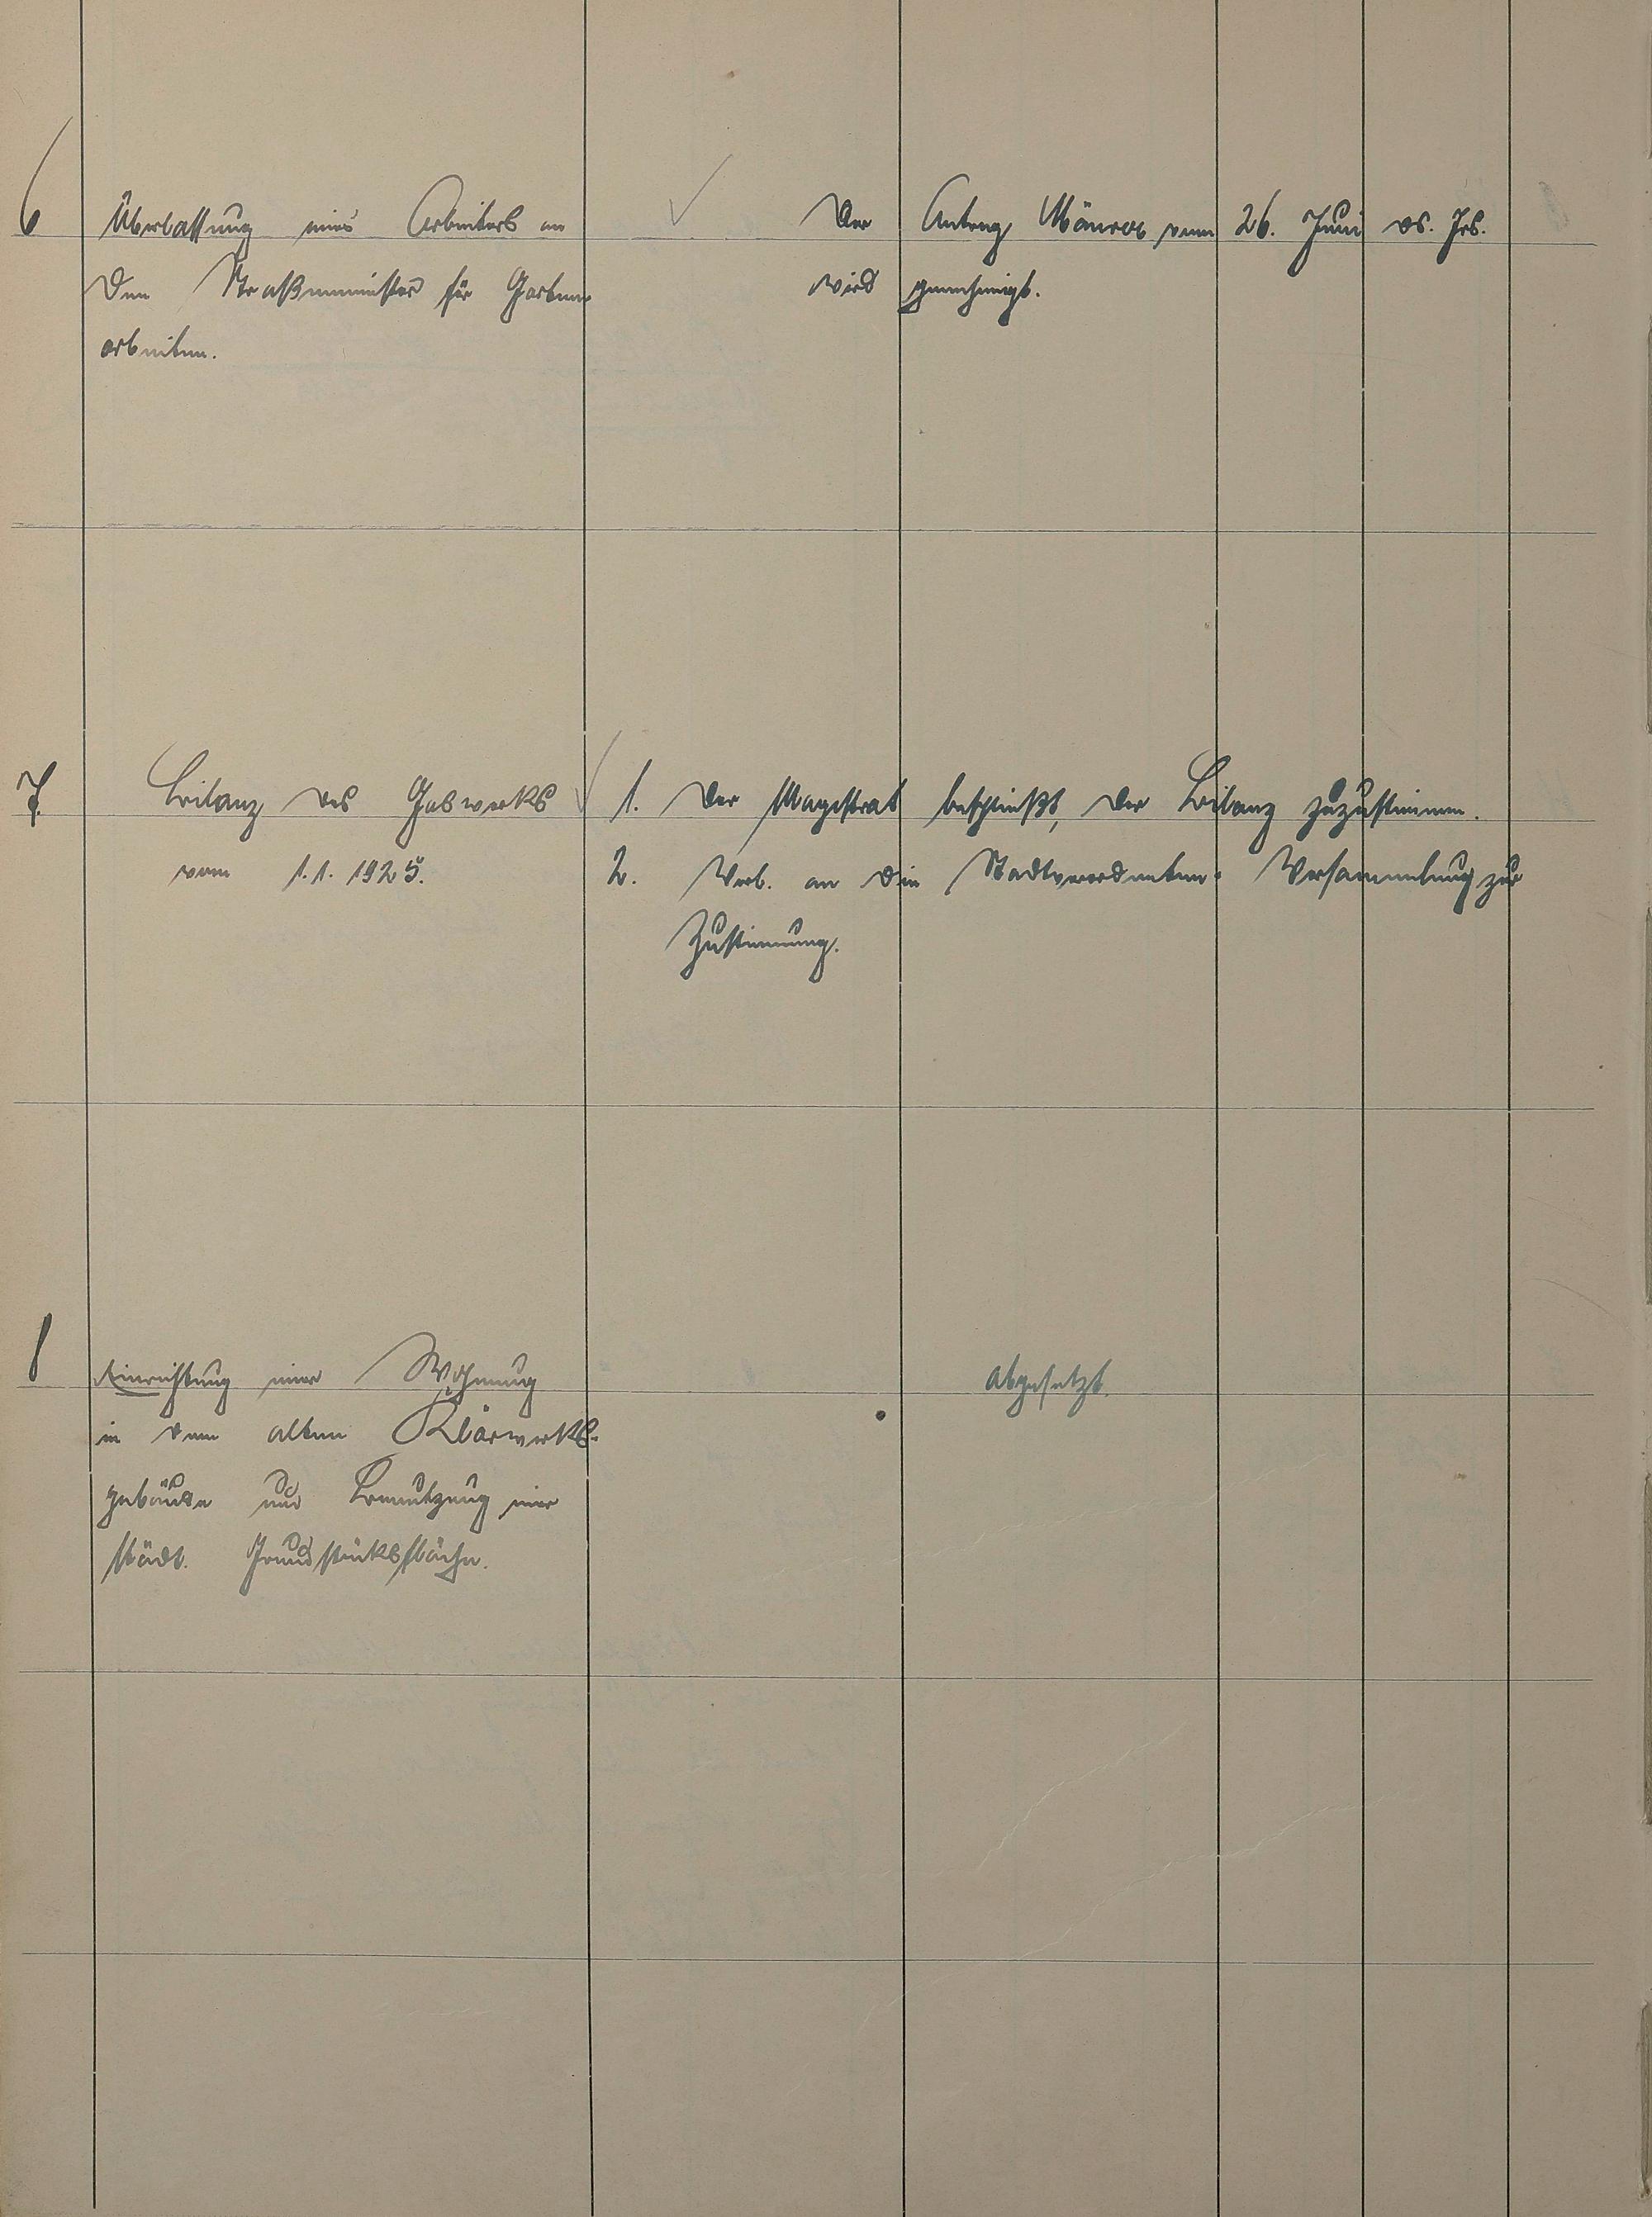 6 Überlassung eines Arbeiters an
den Straßenmeister für Garten-
arbeiten.
Der Antrag vom 26. Juni ds. Js.
wird genehmigt.
7. Bilanz des Gaswerks
vom 1.1.1925.
1. Der Magistrat beschließt, der Bilanz zuzustimmen.
2. Vorl. an die Stadtverordneten-Versammlung zur
Zustimmung.
8 Einrichtung einer Wohnung
in dem alten Klärwerks-
gebäude und Benutzung einer
städt. Grundstücksfläche.
Abgesetzt.